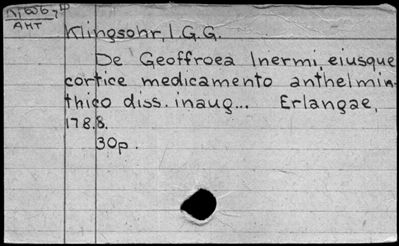 AHT
Klingsohr, I.G.G.
De Geoffroea Inermi, eiusque
cortice medicamento anthelmin-
thico diss. inaug... Erlangae,
1788.
30p.